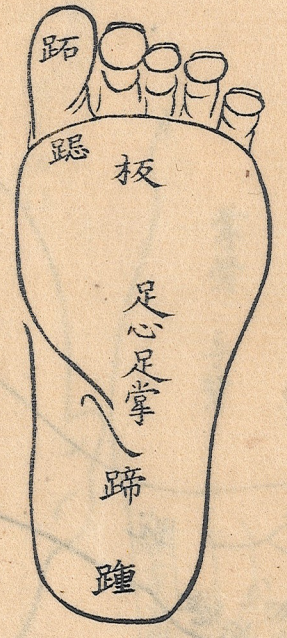 跖
跽
板
足心足掌
蹄
踵